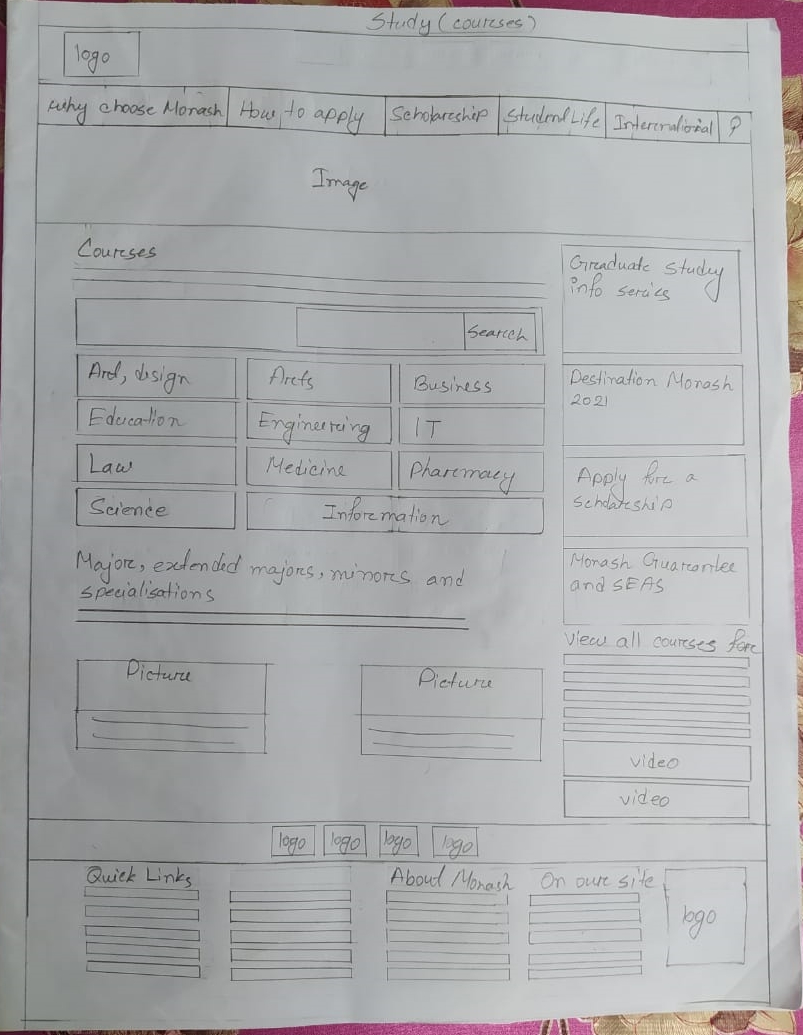 Study (courses)
logo
why choose Monash How to apply Scholarship Student Life International ?
Image
Courses
Search
Art, design Arts Business
Education Engineering IT
Law Medicine Pharmacy
Science Information
Major, extended majors, minors and
specialisations
Picture Picture
Graduate study
info
Destination Monash
2021
Apply for a
Scholarship
Monash Guarantee
and SEAS
View all courses for
video
video
logo logo logo logo
Quick Links About Monash On our site
logo